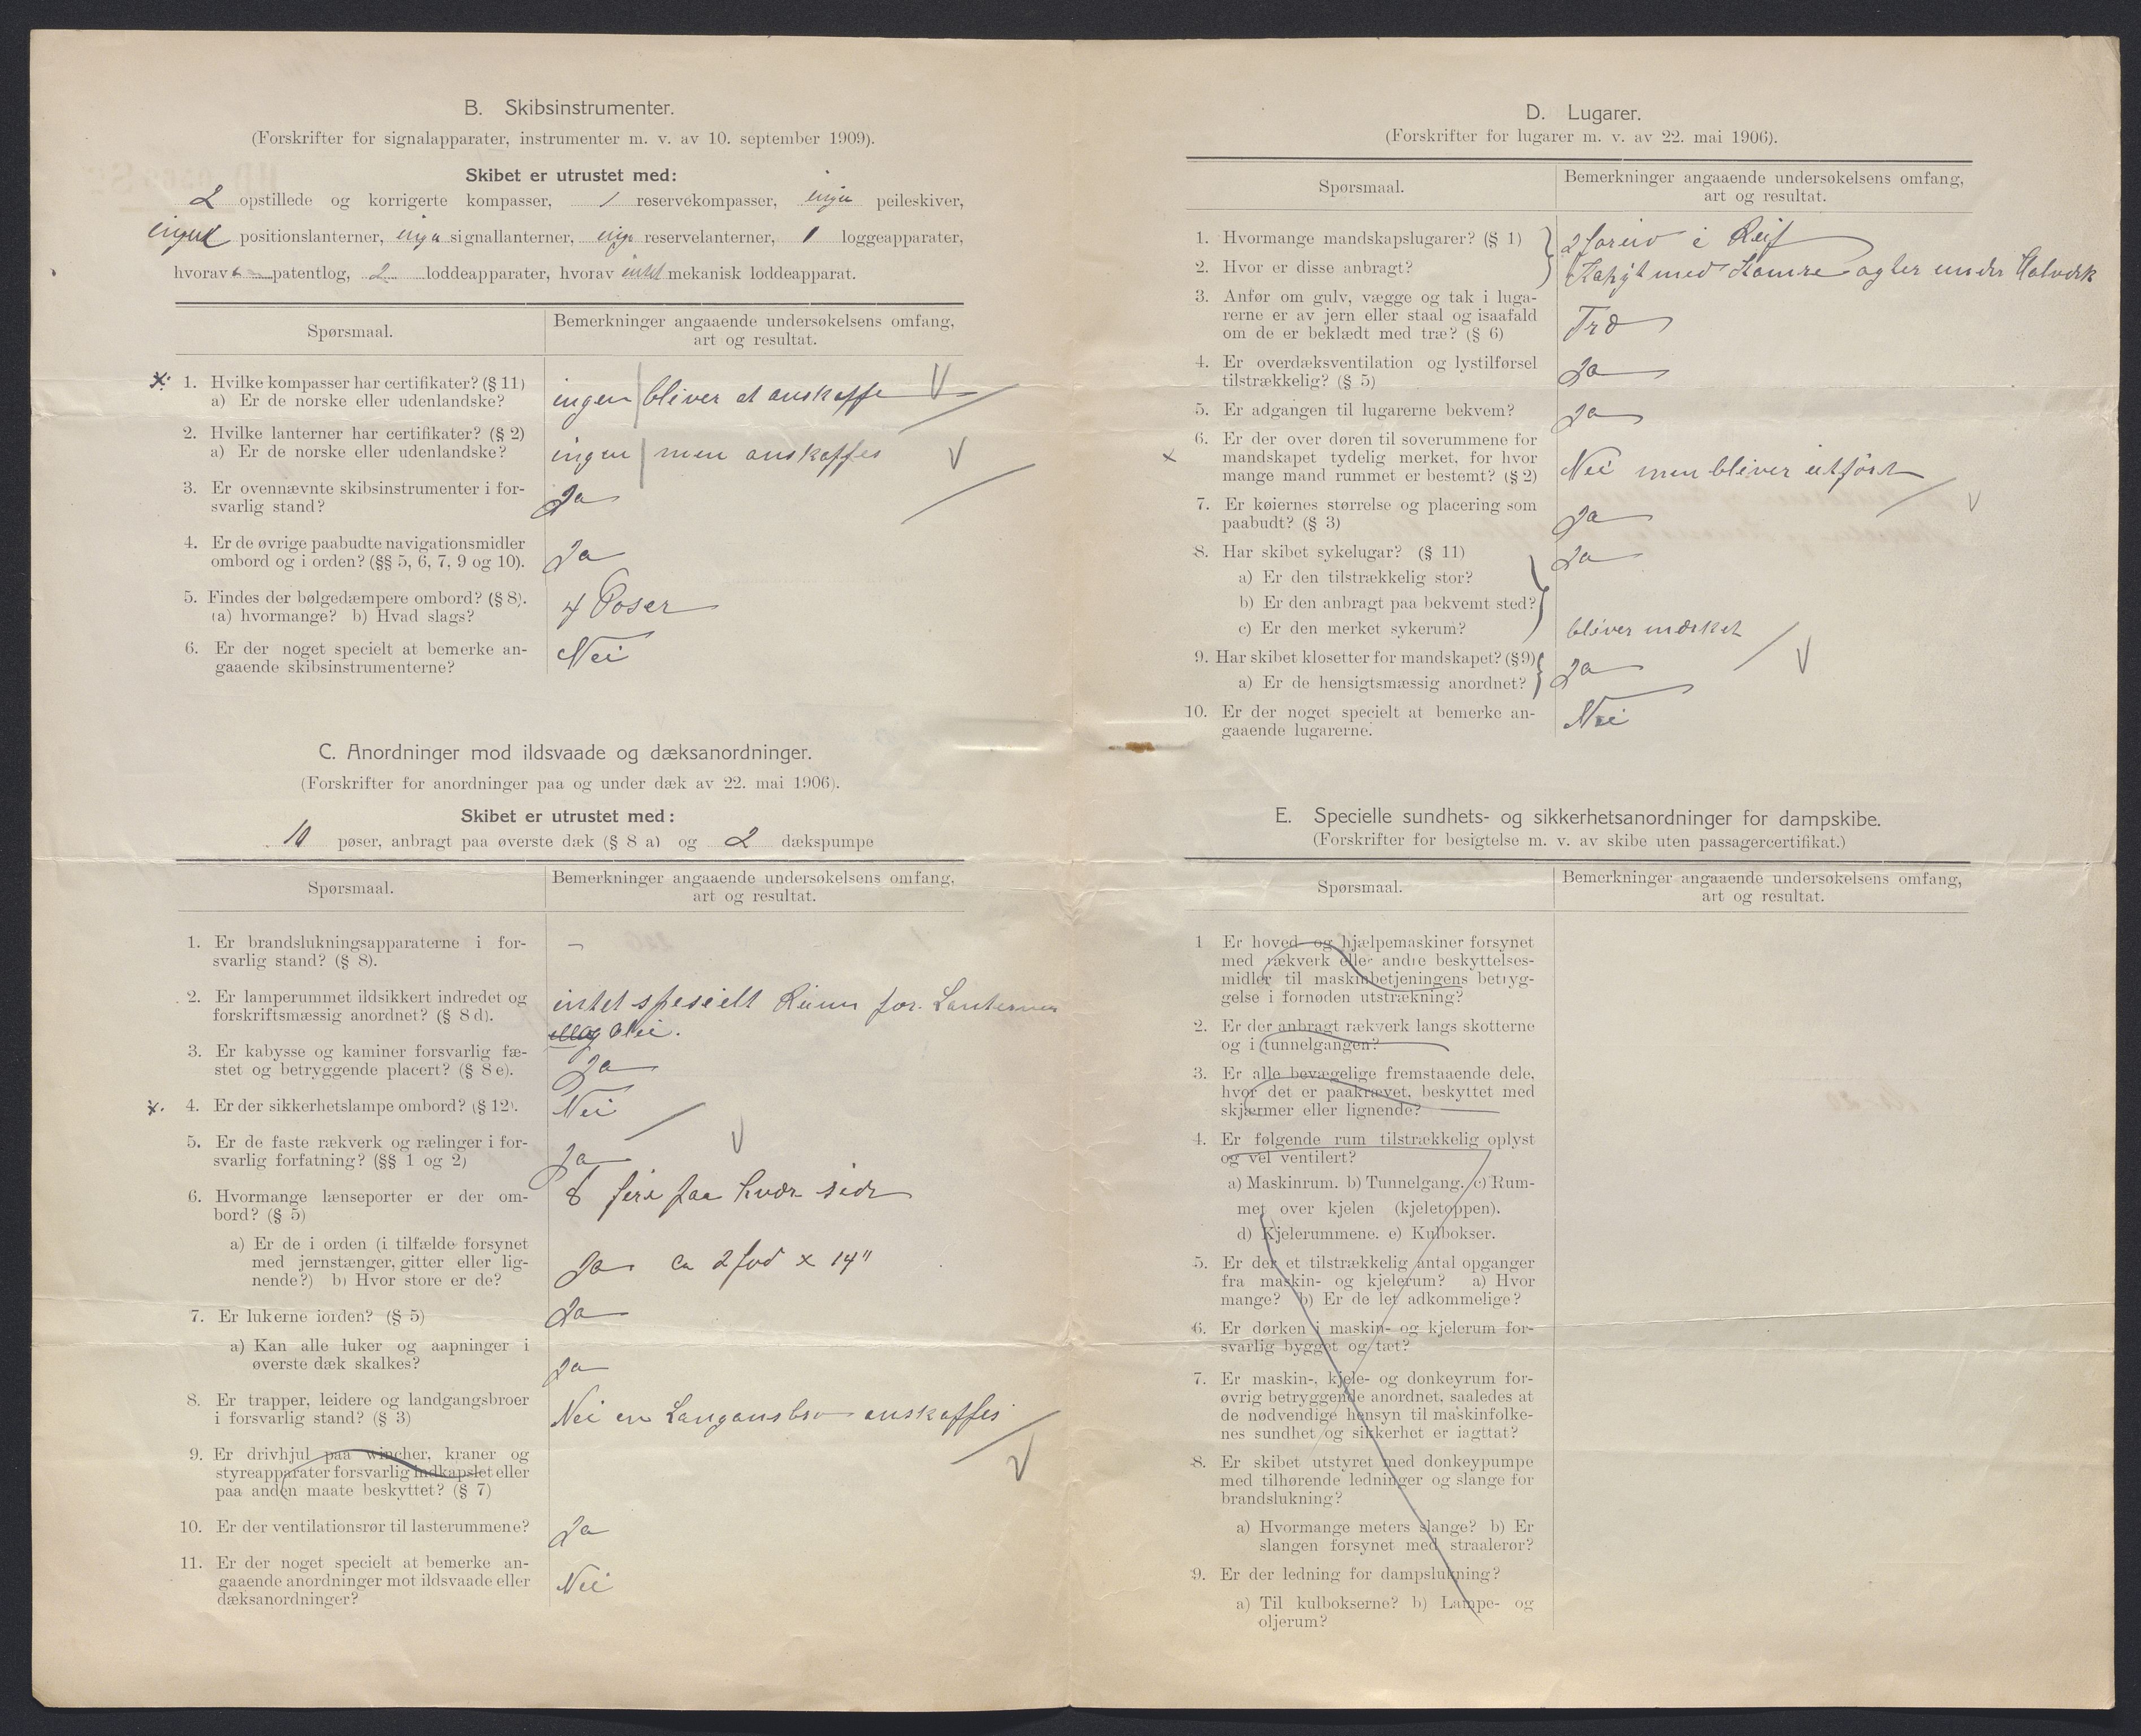 B. Skibsinstrumenter.
(Forskrifter for signalapparater, instrumenter m. v. av 10. september 1909).
Skibet er utrustet med:
2 opstillede og korrigerte kompasser, 1 reservekompasser, ingen peileskiver,
ingen positionslanterner, ingen signallanterner, ingen reservelanterner, 1 loggeapparater,
hvorav patentlog, 2 loddeapparater, hvorav intet mekanisk loddeapparat.
Spørsmaal.
Bemerkninger angaaende undersøkelsens omfang,
art og resultat.
x 1. Hvilke kompasser har certifikater? (§ 11)
a) Er de norske eller udenlandske?
ingen / bliver at anskaffe V
2. Hvilke lanterner har certifikater? (§ 2)
a) Er de norske eller udenlandske?
ingen / men anskaffes V
3. Er ovennævnte skibsinstrumenter i for-
svarlig stand?
Ja
4. Er de øvrige paabudte navigationsmidler
ombord og i orden? (§§ 5, 6, 7, 9 og 10).
Ja
5. Findes der bølgedæmpere ombord? (§ 8).
(a) hvormange? b) Hvad slags?
4 Poser
6. Er der noget specielt at bemerke an-
gaaende skibsinstrumenterne?
Nei
C. Anordninger mod ildsvaade og dæksanordninger.
(Forskrifter for anordninger paa og under dæk av 22. mai 1906).
Skibet er utrustet med:
10 pøser, anbragt paa øverste dæk (§ 8 a) og 2 dækspumpe
Spørsmaal.
Bemerkninger angaaende undersøkelsens omfang,
art og resultat.
1. Er brandslukningsapparaterne i for-
svarlig stand? (§ 8).
–
2. Er lamperummet ildsikkert indredet og
forskriftsmæssig anordnet? (§ 8 d).
intet spesielt Rum for Lanterner
Olie.
3. Er kabysse og kaminer forsvarlig fæ-
stet og betryggende placert? (§ 8 e).
Ja
x. 4. Er der sikkerhetslampe ombord? (§ 12).
Nei V
5. Er de faste rækverk og rælinger i for-
svarlig forfatning? (§§ 1 og 2)
Ja
6. Hvormange lænseporter er der om-
bord? (§ 5)
8 fire paa hver side
a) Er de i orden (i tilfælde forsynet
med jernstænger, gitter eller lig-
nende?) b) Hvor store er de?
Ja ca 2 fod x 14"
7. Er lukerne iorden? (§ 5)
Ja
a) Kan alle luker og aapninger i
øverste dæk skalkes?
Ja
8. Er trapper, leidere og landgangsbroer
i forsvarlig stand? (§ 3)
Nei en Langansbro anskaffes V
9. Er drivhjul paa wincher, kraner og
styreapparater forsvarlig indkapslet eller
paa anden maate beskyttet? (§ 7)
10. Er der ventilationsrør til lasterummene?
Ja
11. Er der noget specielt at bemerke an-
gaaende anordninger mot ildsvaade eller
dæksanordninger?
Nei
D. Lugarer.
(Forskrifter for lugarer m. v. av 22. mai 1906).
Spørsmaal.
Bemerkninger angaaende undersøkelsens omfang,
art og resultat.
1. Hvormange mandskapslugarer? (§ 1)
2 i
2. Hvor er disse anbragt?
Kahyt med agter under Halvdæk
3. Anfør om gulv, vægge og tak i luga-
rerne er av jern eller staal og isaafald
om de er beklædt med træ? (§ 6)
Træ
4. Er overdæksventilation og lystilførsel
tilstrækkelig? (§ 5)
Ja
5. Er adgangen til lugarerne bekvem?
Ja
x 6. Er der over døren til soverummene for
mandskapet tydelig merket, for hvor
mange mand rummet er bestemt? (§ 2)
Nei men bliver utført V
7. Er køiernes størrelse og placering som
paabudt? (§ 3)
Ja
8. Har skibet sykelugar? (§ 11)
Ja
a) Er den tilstrækkelig stor?
b) Er den anbragt paa bekvemt sted?
c) Er den merket sykerum?
bliver mærket V
9. Har skibet klosetter for mandskapet? (§ 9)
a) Er de hensigtsmæssig anordnet?
Ja
10. Er der noget specielt at bemerke an-
gaaende lugarerne.
Nei
E. Specielle sundhets- og sikkerhetsanordninger for dampskibe.
(Forskrifter for besigtelse m. v. av skibe uten passagercertifikat.)
Spørsmaal.
Bemerkninger angaaende undersøkelsens omfang,
art og resultat.
1 Er hoved- og hjælpemaskiner forsynet
med rækverk eller andre beskyttelses-
midler til maskinbetjeningens betryg-
gelse i fornøden utstrækning?
2. Er der anbragt rækverk langs skotterne
og i tunnelgangen?
3. Er alle bevægelige fremstaaende dele,
hvor det er paakrævet, beskyttet med
skjærmer eller lignende?
4. Er følgende rum tilstrækkelig oplyst
og vel ventilert?
a) Maskinrum. b) Tunnelgang. c) Rum-
met over kjelen (kjeletoppen).
d) Kjelerummene. e) Kulbokser.
5. Er der et tilstrækkelig antal opganger
fra maskin- og kjelerum? a) Hvor
mange? b) Er de let adkommelige?
6. Er dørken i maskin- og kjelerum for-
svarlig bygget og tæt?
7. Er maskin-, kjele- og donkeyrum for-
øvrig betryggende anordnet, saaledes at
de nødvendige hensyn til maskinfolke-
nes sundhet og sikkerhet er iagttat?
8. Er skibet utstyret med donkeypumpe
med tilhørende ledninger og slange for
brandslukning?
a) Hvormange meters slange? b) Er
slangen forsynet med straalerør?
9. Er der ledning for dampslukning?
a) Til kulbokserne? b) Lampe- og
oljerum?